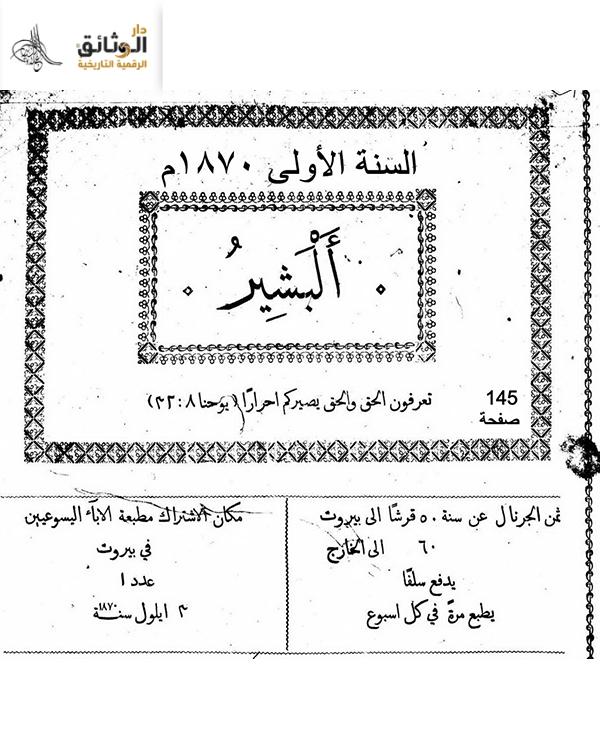 دار
الوثائق
الرقمية التاريخية
السنة الأولى ١٨٧٠م
أَلْبَشِيرُ
تعرفون الحق والحق يصيركم احرارًا (يوحنا ٨:٣٢)
145
صفحة
ثمن الجرنال عن سنة ٥٠ قرشًا الى بيروت
٦٠ الى الخارج
يدفع سلفًا
يطبع مرةً في كل اسبوع
مكان الاشتراك مطبعة الابآء اليسوعيين
في بيروت
عدد ١
٣ ايلول سنة ١٨٧٠